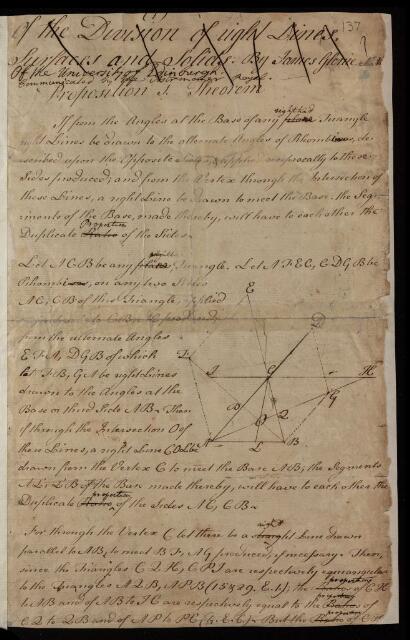 137
of the Division of right Lines
Surfaces and Solids. By James Glenie
Of the University of Edinburgh.
Communicated by the Astronomer Royal.
Proposition I. Theorem
right lined
If from the Angles at the Base of any plane Triangle
right Lines be drawn to the alternate Angles of Rhombi, de-
scribed upon the Opposite applied reciprocally to these
Sides produced; and from the Vertex through the Intersection of
these Lines, a right Line be drawn to meet the Base: the Seg-
ments of the Base, made thereby, will have to each other the
Duplicate Ratio of the Sides.
Let ACB be any Triangle. Let AFEC, CDGB be
Rhombi, on any two Sides
AC, CB of this Triangle, applied
to CB, AC
from the alternate Angles
EFA, DGB of which
let FB, GA be right Lines
drawn to the Angles at the
Base or third Side AB. Then
if through the Intersection O of
these Lines, a right Line COL be
drawn from the Vertex C to meet the Base AB, the Segments
AL, LB of the Base made thereby, will have to each other the
Duplicate Ratio of the Sides AC, CB.
right
For through the Vertex C let there be a straight Line drawn
parallel to AB, to meet BF, AG produced, if necessary. Then,
since the Triangles CQH, CPI are respectively equiangular
to the Triangles AQB, APB (15 & 29. E. 1); the Ratios of CH
to AB and of AB to IC are respectively equal to the Ratios of
CQ to QB and of AP to PC (4. E. 6). But the Ratio of CH
E
D
I
C
H
G
O
Q
A
L
B